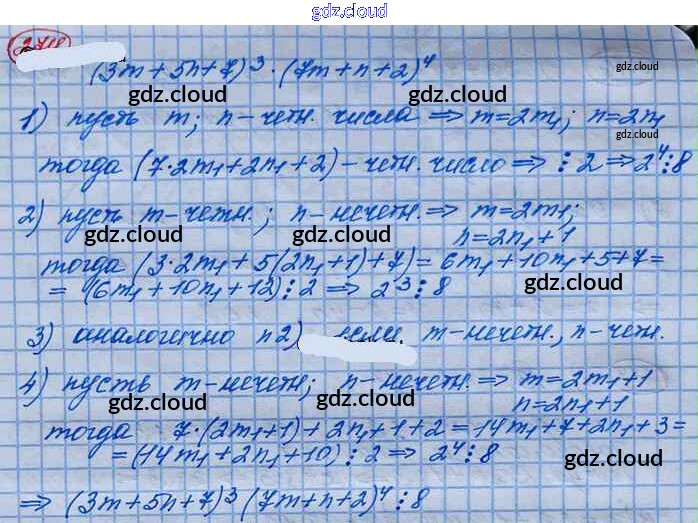 gdz.cloud
(3m+5n+7)³·(7m+n+2)⁴
gdz.cloud
gdz.cloud
1) пусть m; n-четн. числа ⇒ m=2m₁; n=2n₁
gdz.cloud
тогда (7·2m₁+2n₁+2)-четн. число ⇒ ⋮2 ⇒ 2⁴⋮8
2) пусть m-четн.; n-нечетн. ⇒ m=2m₁;
gdz.cloud
gdz.cloud
gdz.cloud
n=2n₁+1
тогда (3·2m₁+5(2n₁+1)+7)=6m₁+10n₁+5+7=
=(6m₁+10n₁+12)⋮2 ⇒ 2³⋮8
gdz.cloud
3) аналогично п2) m-нечетн., n-четн.
4) пусть m-нечетн; n-нечетн. ⇒ m=2m₁+1
gdz.cloud
gdz.cloud
n=2n₁+1
тогда 7·(2m₁+1)+2n₁+1+2=14m₁+7+2n₁+3=
=(14m₁+2n₁+10)⋮2 ⇒ 2⁴⋮8
gdz.cloud
gdz.cloud
⇒ (3m+5n+7)³(7m+n+2)⁴⋮8
gdz.cloud